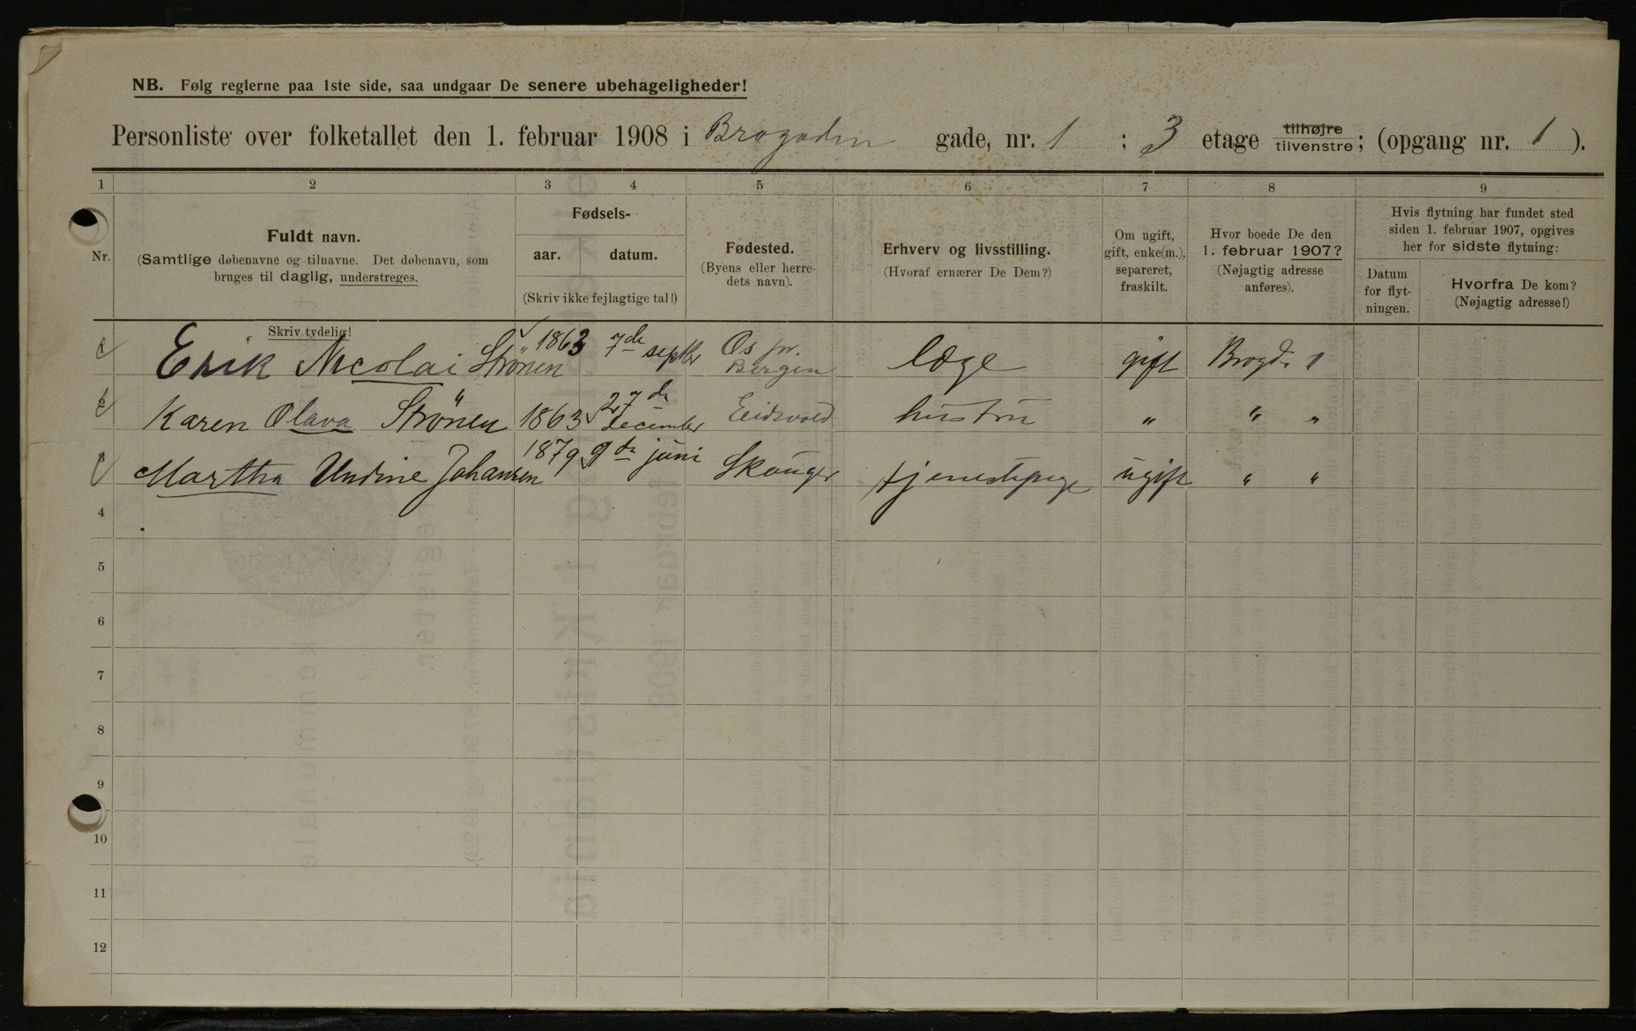 NB. Følg reglerne paa 1ste side, saa undgaar De senere ubehageligheder!
Personliste over folketallet den 1. februar 1908 i Brogaden gade, nr. 1 ; 3 etage tilhøjre tilvenstre; (opgang nr. 1 ).
1 2 3 4 5 6 7 8 9
Nr.
Fuldt navn.
(Samtlige døbenavne og tilnavne. Det døbenavn, som
bruges til daglig, understreges.
Skriv tydelig!
Fødsels-
aar. datum.
(Skriv ikke fejlagtige tal!)
Fødested.
(Byens eller herre-
dets navn).
Erhverv og livsstilling.
(Hvoraf ernærer De Dem?)
Om ugift,
gift, enke(m.),
separeret,
fraskilt.
Hvor boede De den
1. februar 1907?
(Nøjagtig adresse
anføres).
Hvis flytning har fundet sted
siden 1. februar 1907, opgives
her for sidste flytning:
Datum
for flyt-
ningen.
Hvorfra De kom?
(Nøjagtig adresse!)
Erik Nicolai Strönen 1863 7de septbr Os pr. Bergen læge gift Brogd. 1
Karen Olava Strönen 1863 27de december Eidsvold hustru " " "
Martha Undine Johansen 1879 9de juni Skouger tjenestepige ugift " "
4
5
6
7
8
9
10
11
12